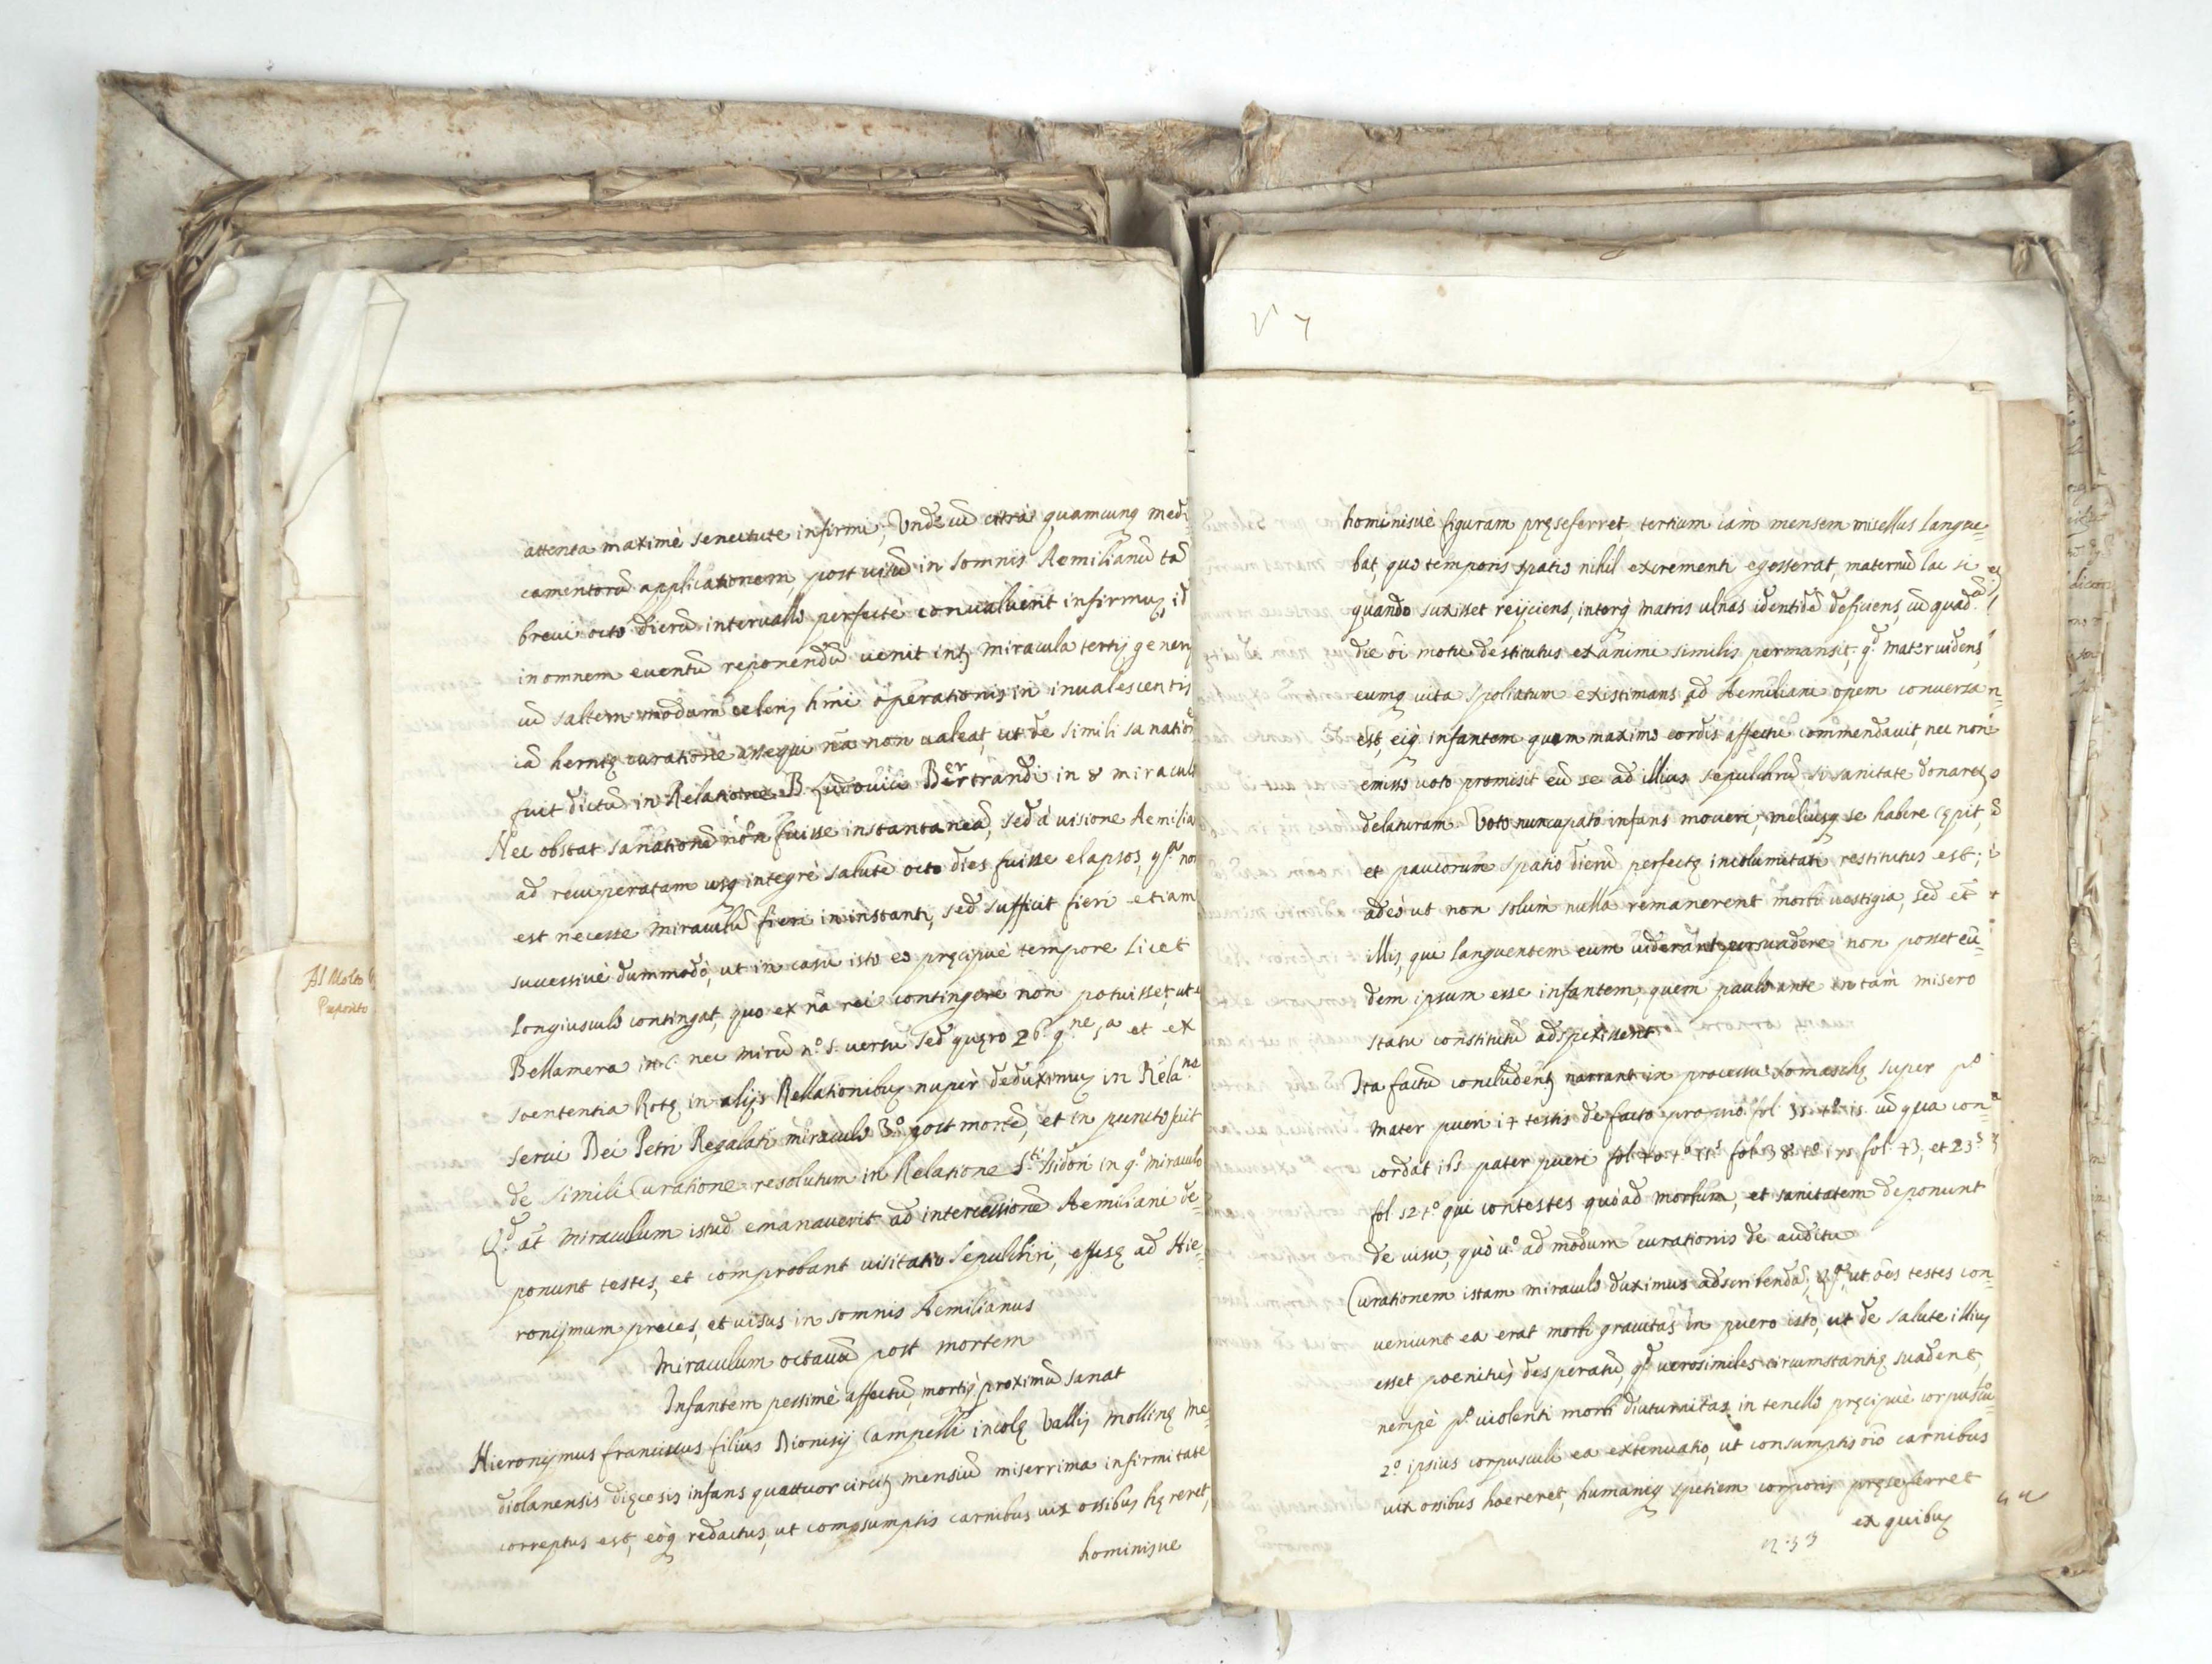 attenta maximè senectute infirmi; Vnde cũ citrà quamcunq medi
camentorũ applicationem, post uisũ in somnis Aemilianũ tã
breui octo dierũ interuallo perfectè conualuerit infirmus, id
in omnem euentũ reponendũ uenit inter miracula tertij generis
cũ saltem modum celeris hmoi operationis in inualescentis
iã hernię curatione assequi nã non ualeat, ut de simili sanatione
fuit dictũ in Relatione B. Ludouici Bertrandi in 8 miraculo
Nec obstat sanationẽ non fuisse instantaneã, sed à uisione Aemiliani
ad recuperatam usq integrè salutẽ octo dies fuisse elapsos, qa non
est necesse miraculũ fieri in instanti, sed sufficit fieri etiam
successiuè dummodò, ut in casu isto eo pręcipuè tempore licet
longiusculo contingat, quo ex nã rei contingere non potuisset, ut
Bellamera in c. nec mirũ nº 5. uersu sed quęro 26. qne, 5a et ex
sententia Rotę in alijs Rellationibus nupèr deduximus in Relane
serui Dei Petri Regalati miraculo 3º post mortẽ, et in puncto fuit
de simili Curatione resolutum in Relatione Sti Isidori in qo miraculo
Qd at miraculum istud emanauerit ad intercessionẽ Aemiliani de=
ponunt testes, et comprobant uisitatio sepulchri, effusę ad Hie=
ronijmum preces, et uisus in somnis Aemilianus
Miraculum octauũ post mortem
Infantem pessimè affectũ, mortiq proximũ sanat
Hieronymus franciscus filius Dionisij Campelli incolę Vallis Mollinę Me=
diolanensis dięcesis infans quattuor circitèr mensiũ miserrima infirmitate
correptus est, eòq redactus, ut compsumptis carnibus uix ossibus hęreret,
hominisue
Al Molto
Preposito
V 7
hominisuè figuram pręseferret, tertium iam mensem misellus langue=
bat, quo temporis spatio nihil excrementi egesserat, maternũ lac si
quando suxisset reijciens, interq matris ulnas identidẽ deficiens, cũ quadã
die oĩ motu destitutus exanimi similis permansit; qd mater uidens,
eumq uita spoliatum existimans ad Aemiliani opem conuersa
est, eiq infantem quam maximo cordis affectu commendauit, nec non
emisso uoto promisit eũ se ad illius sepulchrũ si sanitate donaretur
delaturam. Voto nuncupato infans moueri, meliusq se habere cępit,
et paucorum spatio dierũ perfectę incolumitati restitutus est;
adeò ut non solùm nulla remanerent morbi uestigia, sed et
illis, qui languentem eum uiderant persuadere non posset eũ=
dem ipsum esse infantem, quem paulo ante in tàm misero
statu constitutũ adspexissent
Ita factũ concludentèr narrant in processu Somaschę super po
mater pueri 14 testis de facto proprio fol. 35. to. 15. cũ qua con=
cordat 16s pater pueri fol. 40. to. 11s fol. 38 to. 17s fol. 43, et 23s
fol. 52. to. qui contestes quò ad morbum, et sanitatem deponunt
de uisu, quò uo ad modum curationis de auditu
Curationem istam miraculo duximus adscribendã, Qa, ut oẽs testes con=
ueniunt ea erat morbi grauitas in puero isto, ut de salute illius
esset poenitùs desperatũ, qd uerosimiles circumstantię suadent,
nempè po uiolenti morbi diuturnitas in tenello pręcipuè corpuscu=
2º ipsius corpusculi ea extenuatio, ut consumptis oĩo carnibus
uix ossibus hoereret, humaniq spetiem corporis pręseferret
ex quibus
n. 33